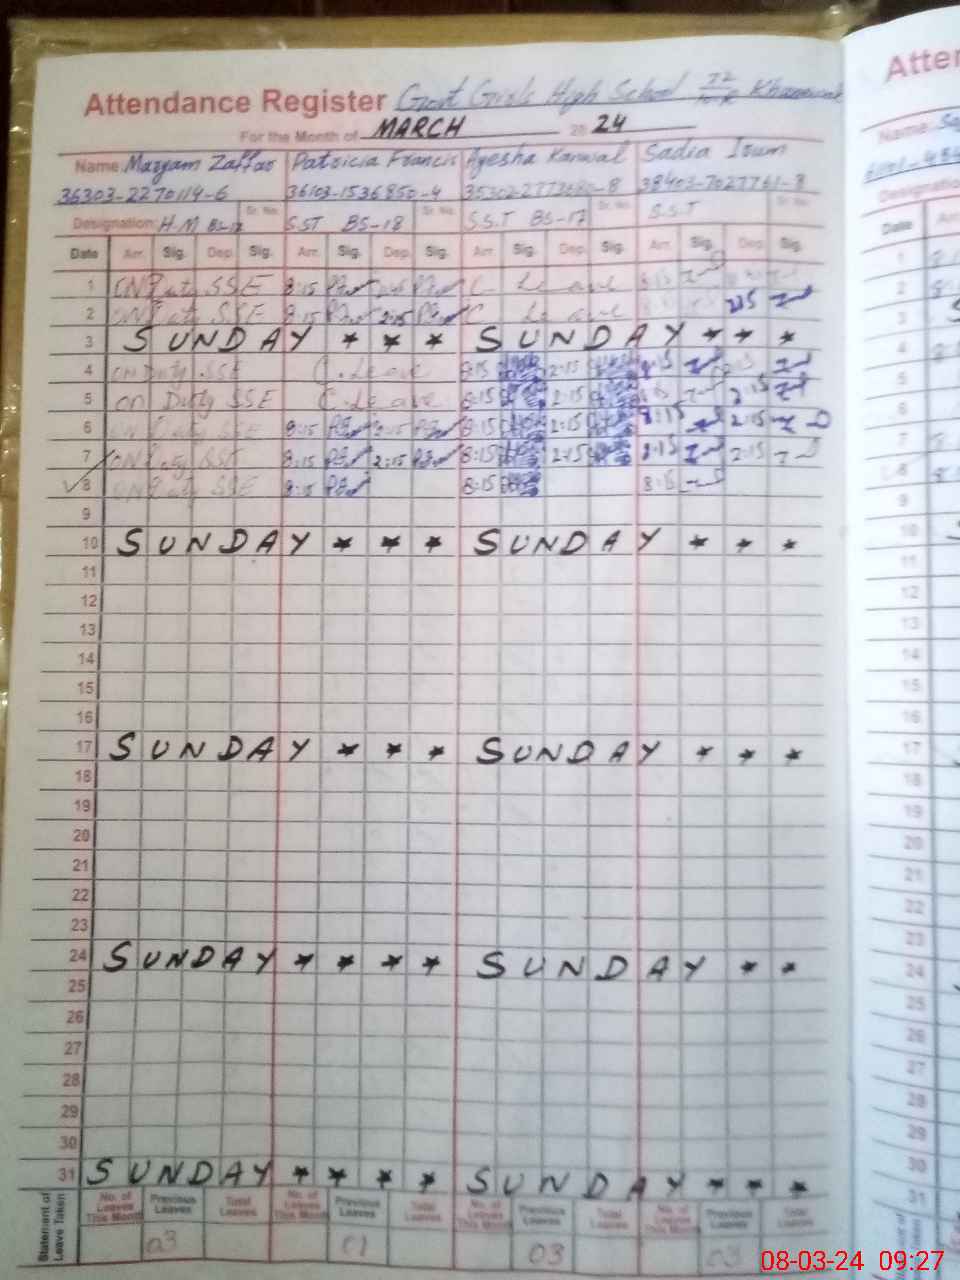 Attendance Register Govt Girls High School 72/10-R Khanewal
For the Month of MARCH 20 24
Name Maryam Zaffar Patricia Francis Ayesha Kanwal Sadia Irum
36303-2270114-6 36103-1536850-4 35302-2773680-8 38403-7027761-8
Sr. No. Sr. No. Sr. No. Sr. No.
Designation: H.M BS-18 S.ST BS-18 S.S.T BS-17 S.S.T
Date Arr. Sig. Dep. Sig. Arr. Sig. Dep. Sig. Arr. Sig. Dep. Sig. Arr. Sig. Dep. Sig.
1 ON Duty SSE 8:15 C. Leave 8:15
2 ON Duty SSE 8:15 2:15 C Leave 2:15
3 SUNDAY * * * SUNDAY * * *
4 ON Duty SSE C. Leave 8:15 2:15 8:15 2:15
5 on Duty SSE C. Leave 8:15 2:15 8:15 2:15
6 on Duty SSE 8:15 2:15 8:15 2:15 8:15 2:15
7 ON Duty SSE 8:15 2:15 8:15 2:15 8:15 2:15
8 ON Duty SSE 8:15 8:15 8:15
9
10 SUNDAY * * * SUNDAY * * *
11
12
13
14
15
16
17 SUNDAY * * * SUNDAY * * *
18
19
20
21
22
23
24 SUNDAY * * * * SUNDAY * *
25
26
27
28
29
30
31 SUNDAY * * * * SUNDAY * * *
Statement of Leave Taken
No. of Leaves This Month Previous Leaves Total Leaves No. of Leaves This Month Previous Leaves Total Leaves No. of Leaves This Month Previous Leaves Total Leaves No. of Leaves This Month Previous Leaves Total Leaves
03 01 03 03
08-03-24 09:27